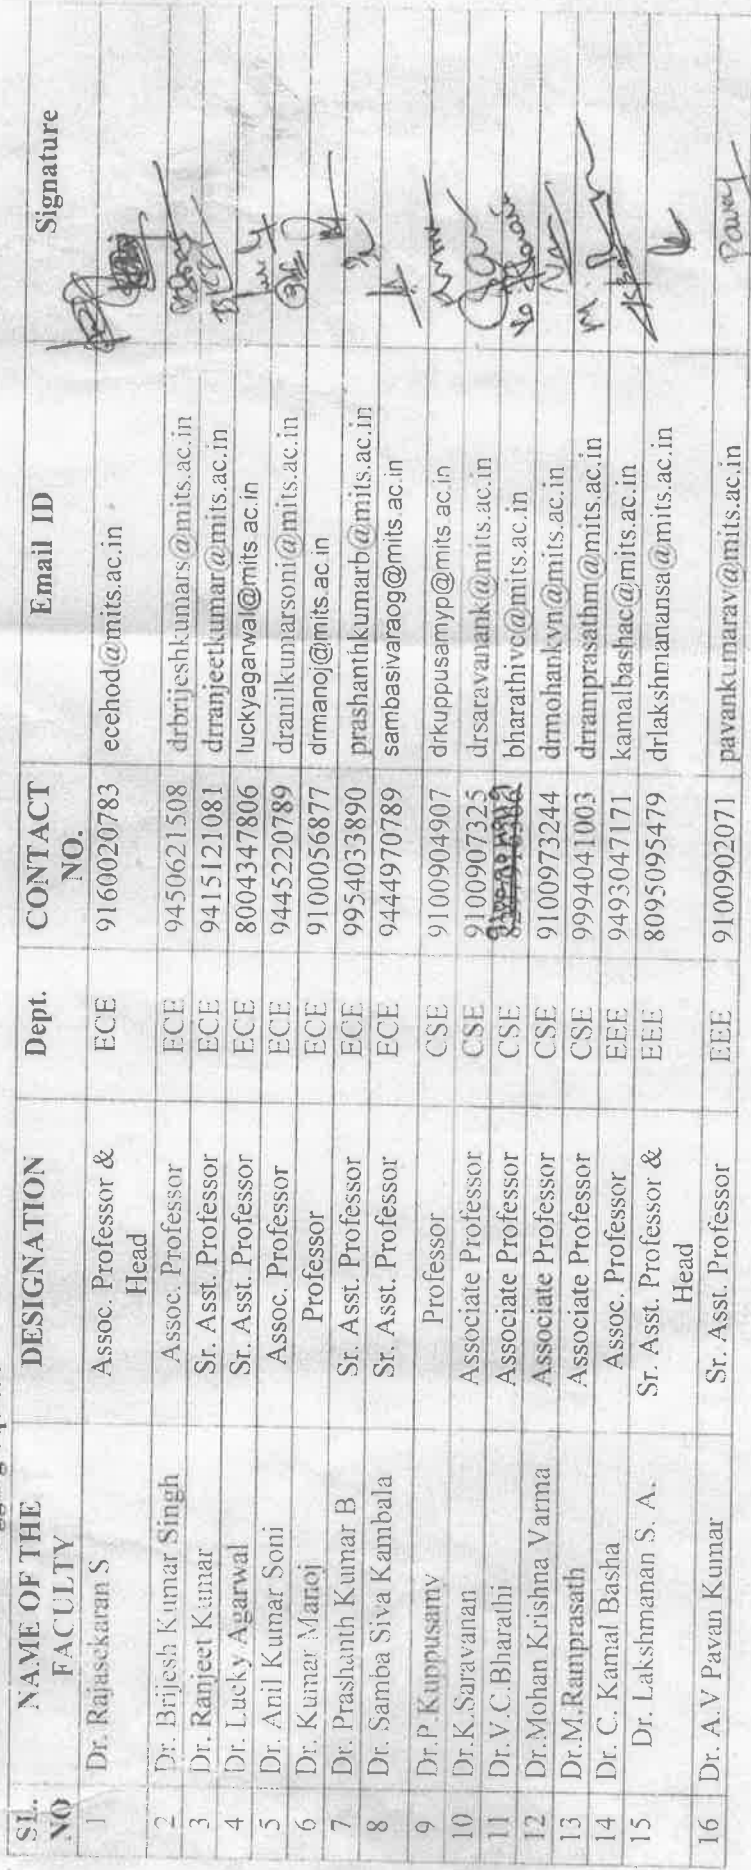 SL. NO NAME OF THE FACULTY DESIGNATION Dept. CONTACT NO. Email ID Signature
1 Dr. Rajasekaran S Assoc. Professor & Head ECE 9160020783 ecehod@mits.ac.in
2 Dr. Brijesh Kumar Singh Assoc. Professor ECE 9450621508 drbrijeshkumars@mits.ac.in
3 Dr. Ranjeet Kumar Sr. Asst. Professor ECE 9415121081 drranjeetkumar@mits.ac.in
4 Dr. Lucky Agarwal Sr. Asst. Professor ECE 8004347806 luckyagarwal@mits.ac.in
5 Dr. Anil Kumar Soni Assoc. Professor ECE 9445220789 dranilkumarsoni@mits.ac.in
6 Dr. Kumar Manoj Professor ECE 9100056877 drmanoj@mits.ac.in
7 Dr. Prashanth Kumar B Sr. Asst. Professor ECE 9954033890 prashanthkumarb@mits.ac.in
8 Dr. Samba Siva Kambala Sr. Asst. Professor ECE 9444970789 sambasivaraog@mits.ac.in
9 Dr.P.Kuppusamy Professor CSE 9100904907 drkuppusamyp@mits.ac.in
10 Dr.K.Saravanan Associate Professor CSE 9100907325 drsaravanank@mits.ac.in
11 Dr.V.C.Bharathi Associate Professor CSE bharathivc@mits.ac.in
12 Dr.Mohan Krishna Varma Associate Professor CSE 9100973244 drmohankvn@mits.ac.in
13 Dr.M.Ramprasath Associate Professor CSE 9994041003 drramprasathm@mits.ac.in
14 Dr. C. Kamal Basha Assoc. Professor EEE 9493047171 kamalbashac@mits.ac.in
15 Dr. Lakshmanan S. A. Sr. Asst. Professor & Head EEE 8095095479 drlakshmanansa@mits.ac.in
16 Dr. A.V Pavan Kumar Sr. Asst. Professor EEE 9100902071 pavankumarav@mits.ac.in Pavan